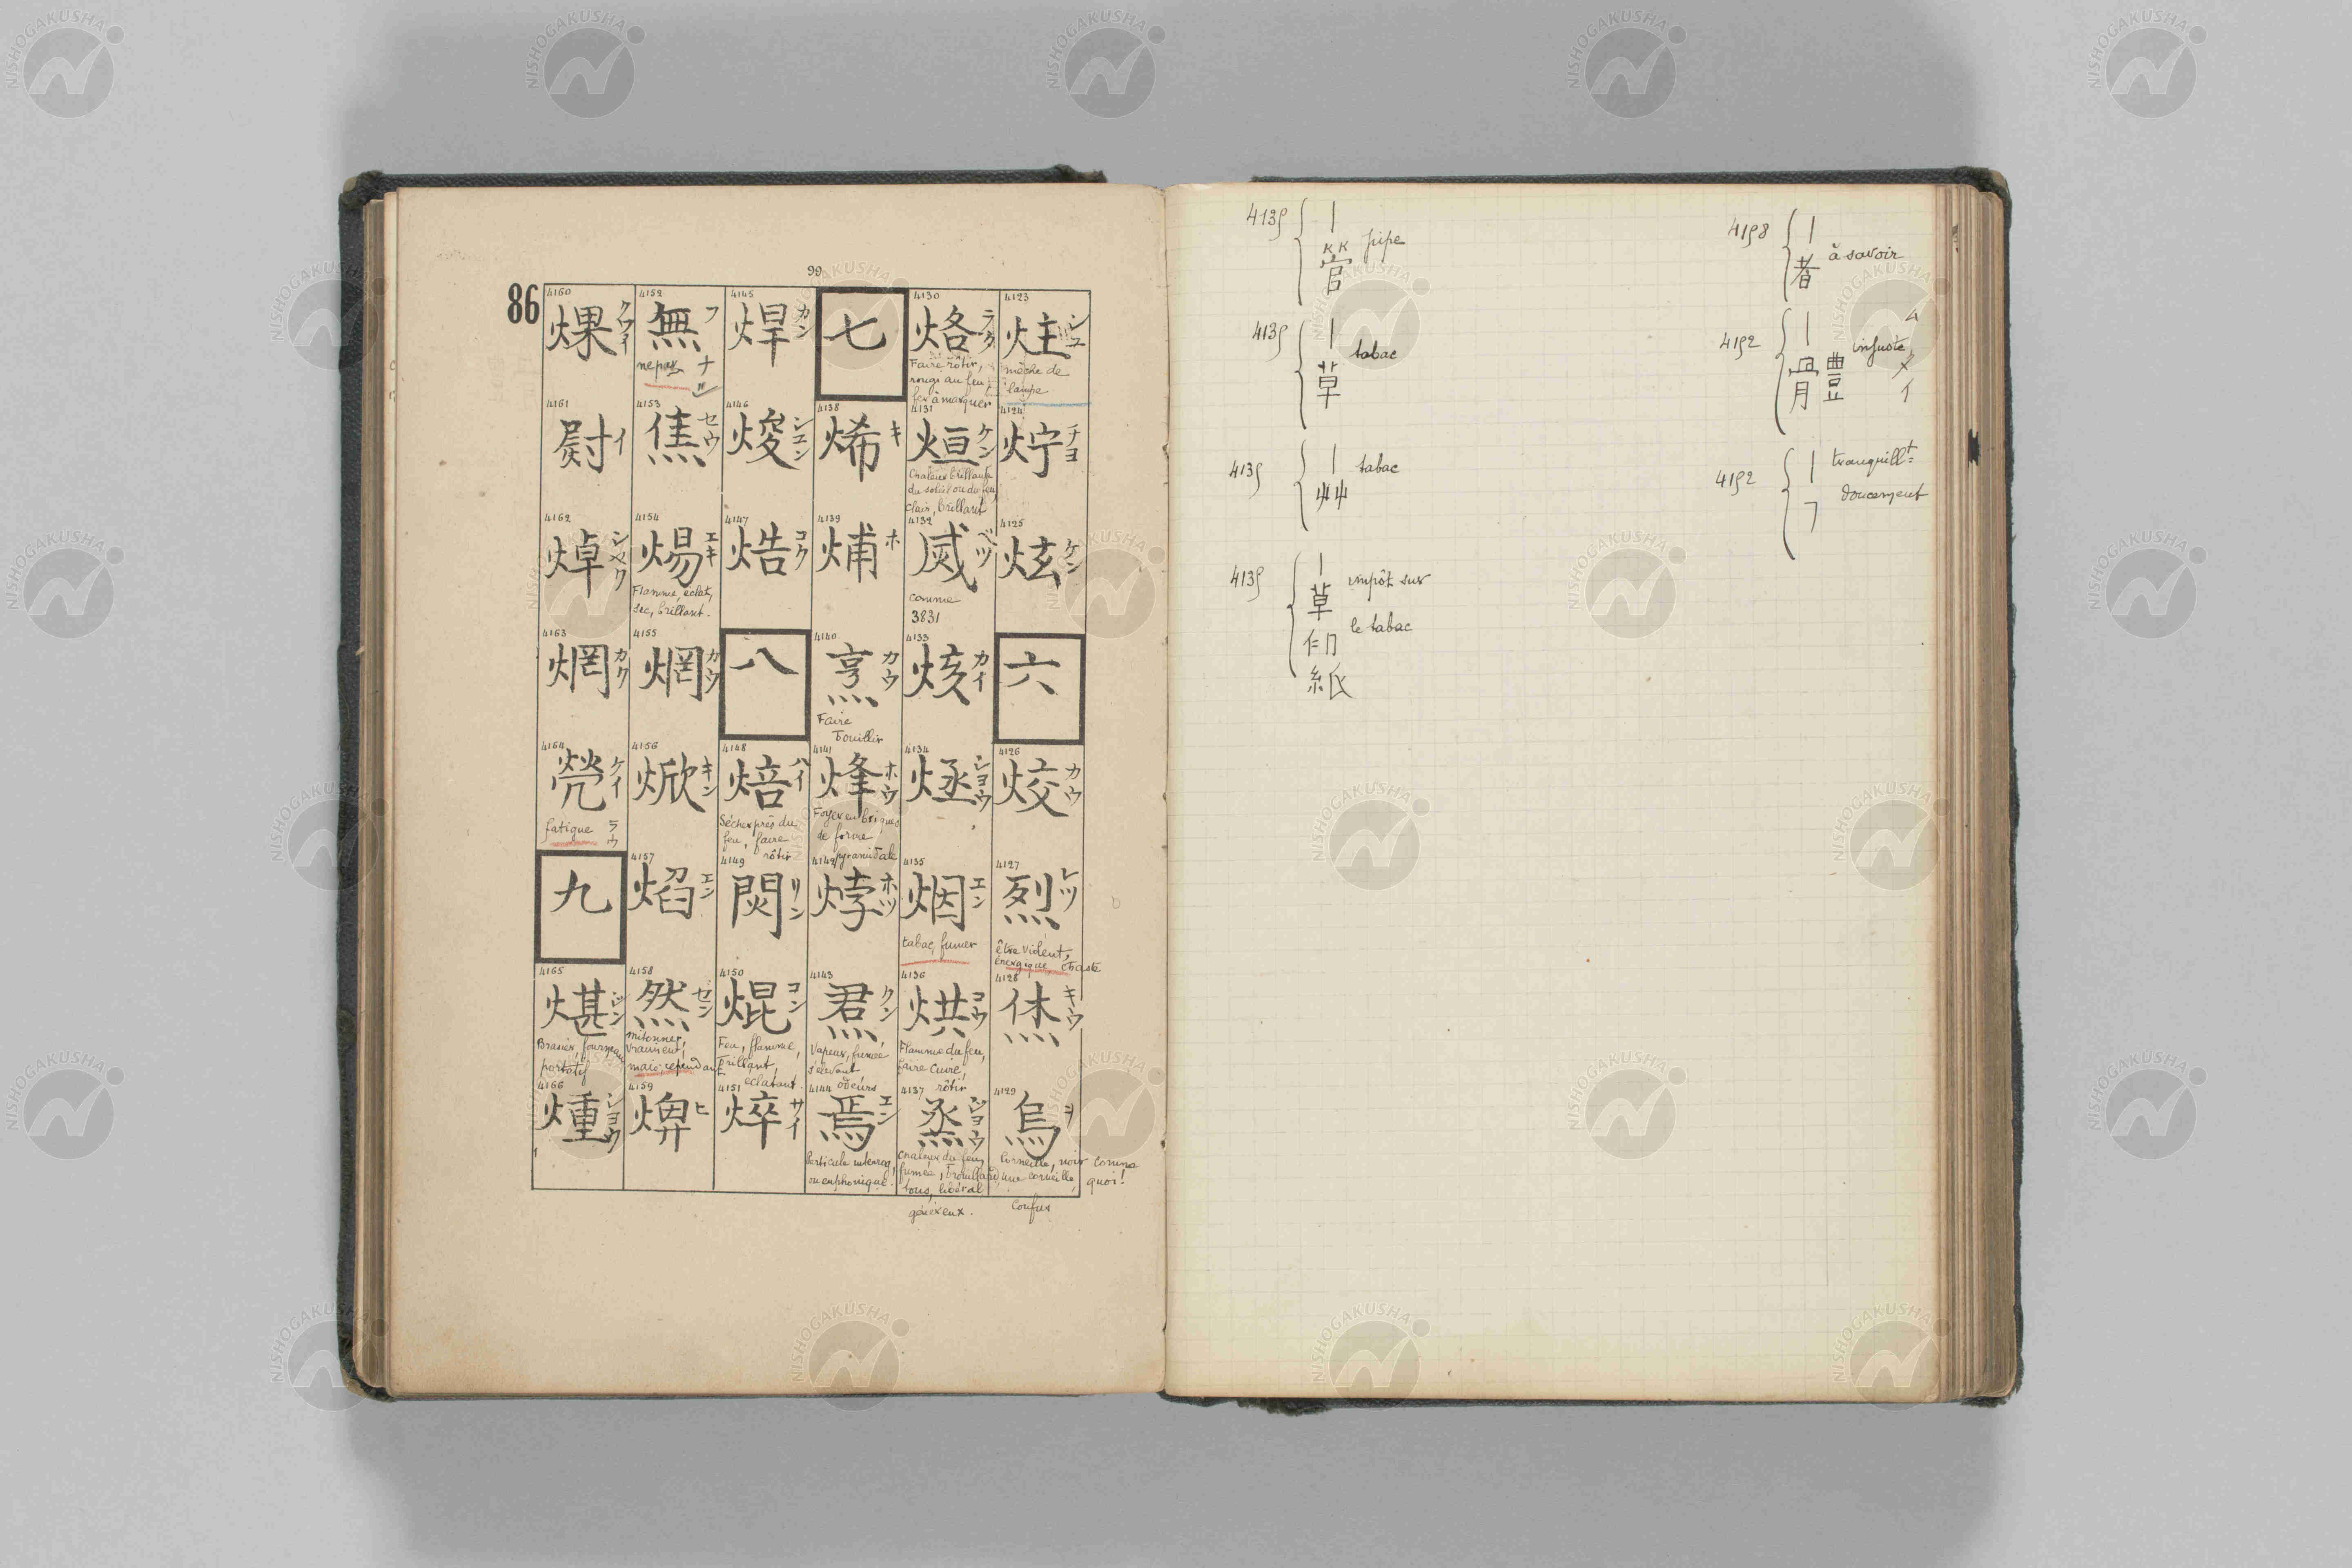 99
86
4123
炷 シユ
mèche de
lampe
4124
炉 チヨ
4125
炫 ケン
六
4126
炆 カウ
4127
烈 レツ
être violent,
énergique chaste
4128
烋 キウ
4129
烏 ヲ
Corneille, noir comme
une corneille, quoi!
Confus
4130
烙 ラク
Faire rôtir,
rougi au feu,
fer à marquer
4131
烜 ケン
Chaleur brillante
du soleil ou du feu
clair, brillant
4132
烕 ベツ
comme
3831
4133
烗 カイ
4134
烝 シヨウ
4135
烟 エン
tabac, fumer
4136
烘 コウ
Flamme du feu,
faire cuire,
rôtir
4137
烝 ジヨウ
Chaleur du feu,
fumée, brouillard,
tous, libéral
généreux.
七
4138
烯 キ
4139
烳 ホ
4140
烹 カウ
Faire
bouillir
4141
烽 ホウ
Foyer en briques
de forme
pyramidale
4142
烰 ホツ
4143
焄 クン
Vapeur, fumée
s'élevant
odeurs
4144
焉 エン
Particule interrog.
ou euphonique.
4145
焊 カン
4146
焌 シユン
4147
焅 コク
八
4148
焙 ハイ
Sécher près du
feu, faire
rôtir
4149
閔 リン
4150
焜 コン
Feu, flamme,
brillant,
éclatant.
4151
焠 サイ
4152
無 フ
ne pas ナ
シ
4153
焦 セウ
4154
焬 エキ
Flamme, éclat,
sec, brillant.
4155
焹 カウ
4156
焮 キン
4157
焰 エン
4158
然 ゼン
mitonner,
vraiment,
mais, cependant
4159
焷 ヒ
4160
煤 クワイ
4161
尉 イ
4162
焯 シヤク
4163
焹 カク
4164
煢 ケイ
fatigue ラウ
九
4165
煁 ジン
Brasier, fourneau
portatif
4166
煄 シヨウ
4135 | 管 pipe
4135 | 草 tabac
4135 | 艸 tabac
4135 | 草 印 紙 impôt sur
le tabac
4158 | 者 à savoir
4152 | 骨豊 injuste ム タ イ
4152 | フ tranquillt
doucement